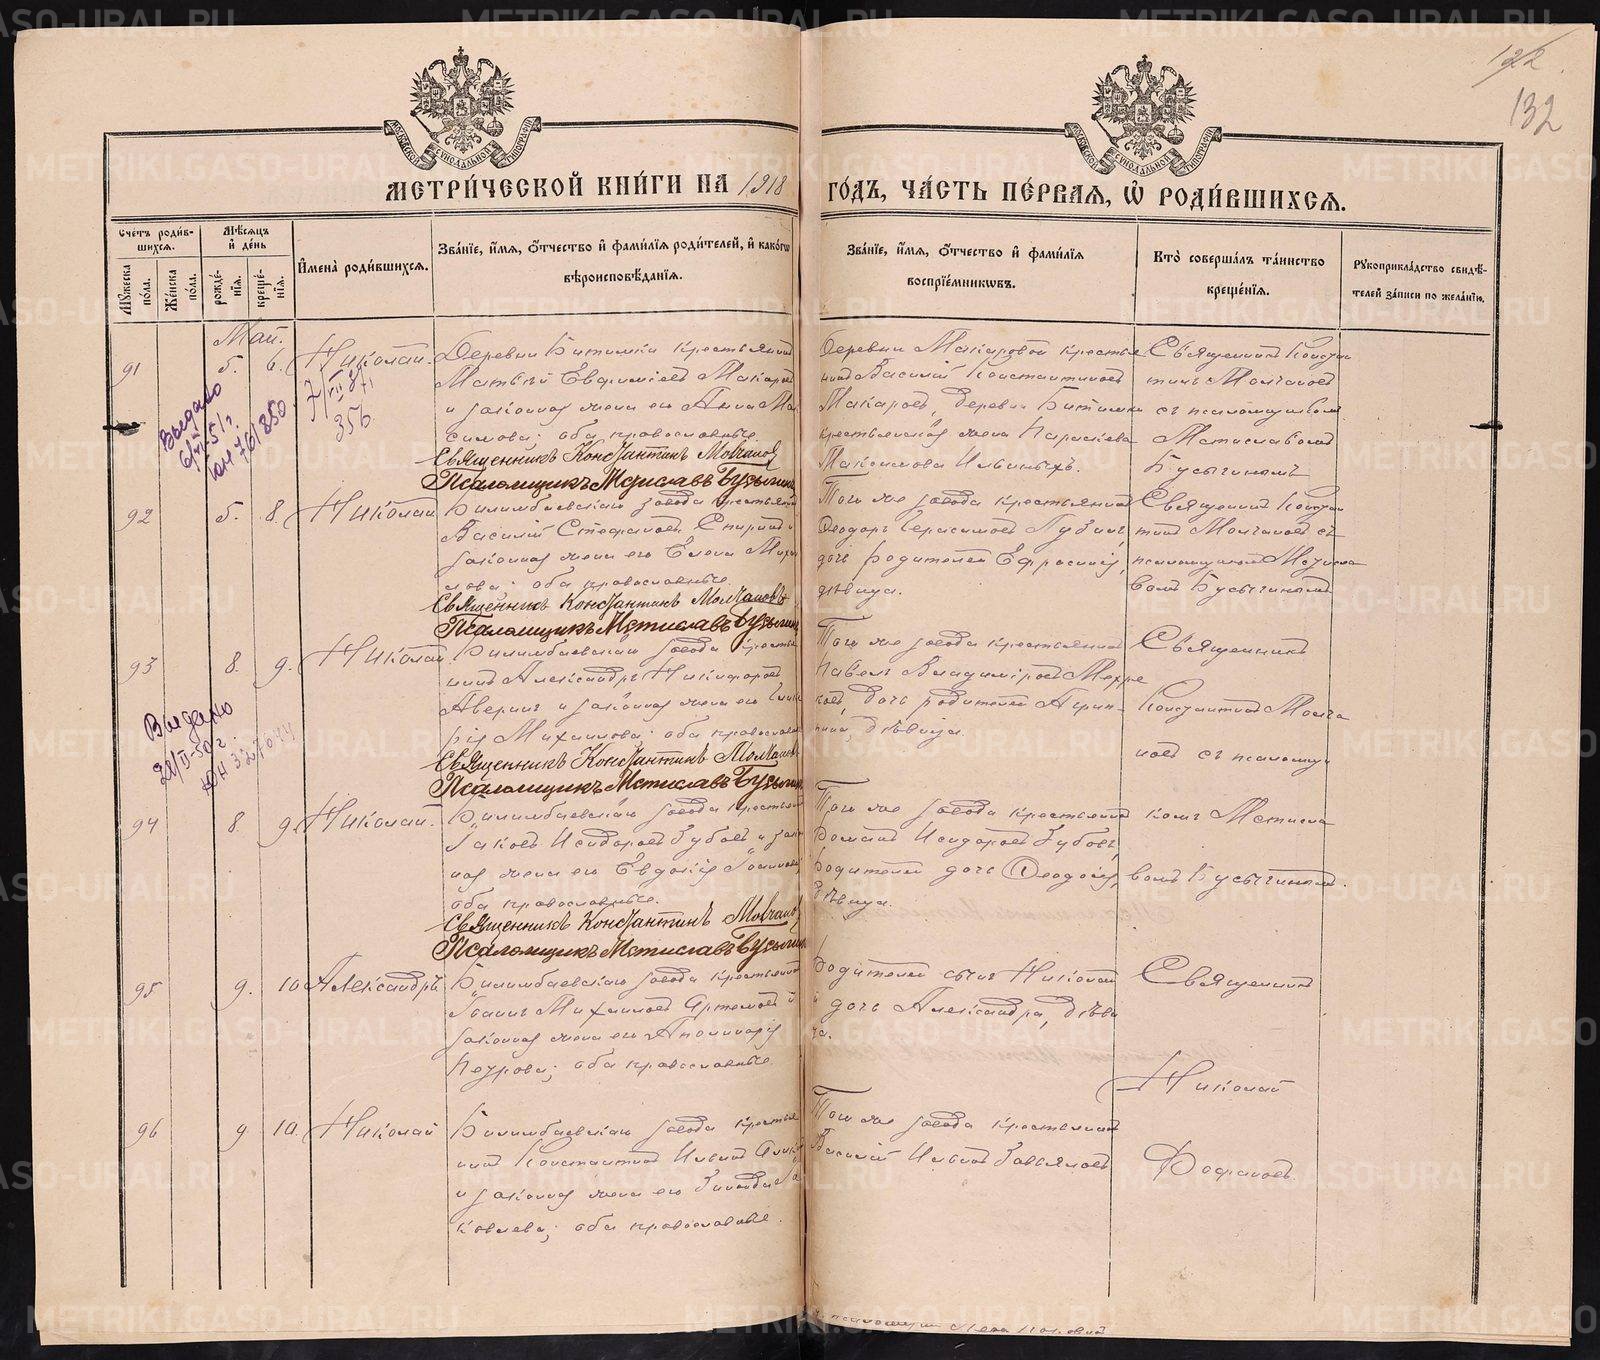 122
132
МОСКОВСКОЙ СѴНОДАЛЬНОЙ ТИПОГРАФІИ
МОСКОВСКОЙ СѴНОДАЛЬНОЙ ТИПОГРАФІИ
МЕТРИ́ЧЕСКОЙ КНИ́ГИ НА 1918
ГО́ДЪ, ЧА́СТЬ ПЕ́РВАЯ, Ѡ РОДИ́ВШИХСЯ.
Счетъ роди́в-
шихся.
Мѣсяцъ
и день
Имена̀ роди́вшихся.
Зва́нїе, и́мя, о́тчество и фами́лїя роди́телей, и како́гѡ
вѣроисповѣ́данїя.
Мꙋжеска по́ла.
Же́нска по́ла.
рожде́-
нїя.
креще́-
нїя.
Зва́нїе, и́мя, о́тчество и фами́лїя
воспрїе́мникѡвъ.
Кто̀ соверша́лъ та́инство
креще́нїя.
Рꙋкоприкла́дство свидѣ́-
телей за́писи по жела́нїю.
Май.
91 5. 6. Николай.
Деревни Битимки крестьянинъ
Матвѣй Евфиміевъ Макаровъ
и законная жена его Анна Мак
симова; оба православные.
Священникъ Константинъ Молчановъ
Псаломщикъ Мстиславъ Бусыгинъ
Деревни Макаровой крестья
нинъ Василій Константиновъ
Макаровъ, деревни Битимки
крестьянская жена Параскева
Максимова Ильиныхъ.
Священникъ Констан
тинъ Молчановъ
съ псаломщикомъ
Мстиславомъ
Бусыгинымъ
Выдано
92 5. 8. Николай
Билимбаевскаго завода крестьянинъ
Василій Стефановъ Спиринъ и
законная жена его Елена Михай
лова; оба православные.
Священникъ Константинъ Молчановъ
Псаломщикъ Мстиславъ Бусыгинъ
Того же завода крестьянинъ
Ѳеодоръ Герасимовъ Пузинъ,
дочь родителей Ефросинія,
дѣвица.
Священникъ Констан
тинъ Молчановъ съ
псаломщикомъ Мстисла
вомъ Бусыгинымъ
93 8. 9. Николай.
Билимбаевскаго завода крестья
нинъ Александръ Никифоровъ
Аверинъ и законная жена его
Михаилова; оба православные
Священникъ Константинъ Молчановъ
Псаломщикъ Мстиславъ Бусыгинъ
Того же завода крестьянинъ
Павелъ Владиміровъ
дочь родителей Агрип-
пина, дѣвица.
Священникъ
Константинъ Молча
новъ съ псаломщи
Выдано
94 8. 9. Николай.
Билимбаевскаго завода крестьянинъ
Іаковъ Исидоровъ Зубовъ и закон
ная жена его Евдокія Іоаннова;
оба православные.
Священникъ Константинъ Молчановъ
Псаломщикъ Мстиславъ Бусыгинъ
Того же завода крестьянинъ
Романъ Исидоровъ Зубовъ,
родителей дочь Ѳеодосія,
дѣвица.
комъ Мстисла
вомъ Бусыгинымъ.
95 9. 10 Александръ
Билимбаевскаго завода крестьянинъ
Іоаннъ Михаиловъ Артемовъ и
законная жена его Аполинарія
Петрова; оба православные.
Родителей сынъ Николай
и дочь Александра, дѣви
ца.
Священникъ
Николай
96 9 10. Николай
Билимбаевскаго завода крестья
нинъ Константинъ Ильинъ
и законная жена его Зинаида Іа
ковлева; оба православные.
Того же завода крестьянинъ
Василій Ильинъ Завьяловъ